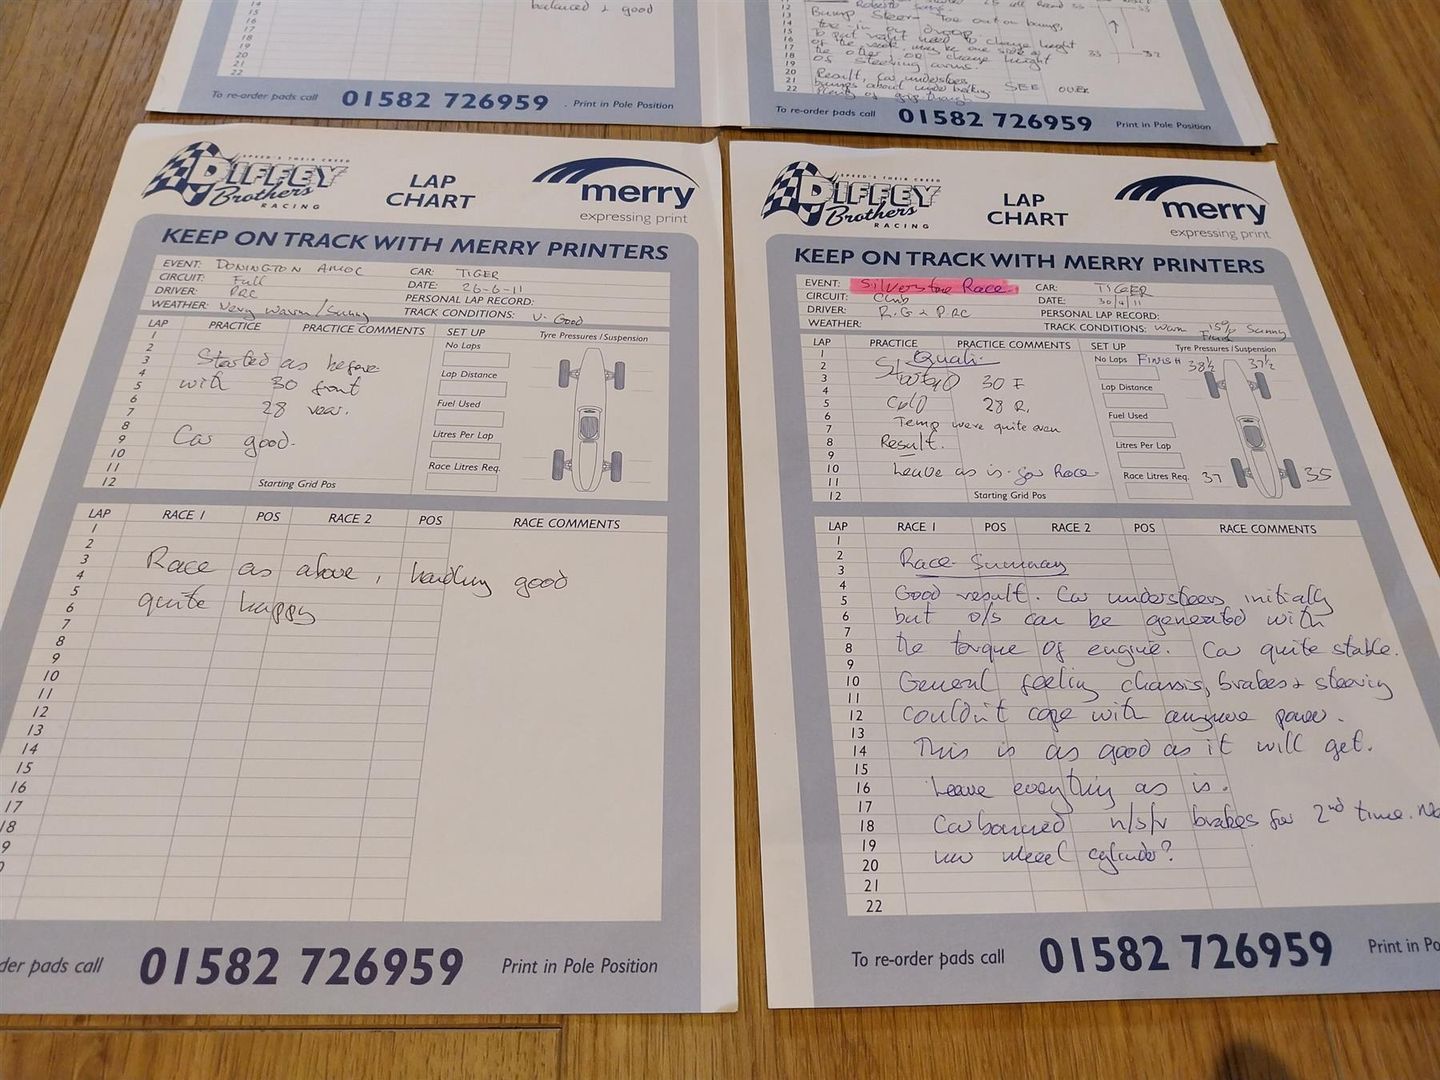 balanced & good
14
15
16
17
18
19
20
21
22
To re-order pads call 01582 726959 . Print in Pole Position
13 Bump Steer. Toe out on bump,
14 toe-in on droop.
15 To put right need to change height
16 of the rack, may be one side or
17 the other or change height
18 of steering arms.
19
20 Result, Car understeers
21 bumps about under braking SEE OVER
22 plenty of grip though
33 32
To re-order pads call 01582 726959 Print in Pole Position
SPEED'S THEIR CREED
DIFFEY
Brothers
RACING
LAP
CHART
merry
expressing print
KEEP ON TRACK WITH MERRY PRINTERS
EVENT: DONINGTON AMOC CAR: TIGER
CIRCUIT: Full DATE: 26-6-11
DRIVER: PRC PERSONAL LAP RECORD:
WEATHER: Very warm/Sunny TRACK CONDITIONS: V. Good
LAP PRACTICE PRACTICE COMMENTS SET UP Tyre Pressures / Suspension
1
2
3 Started as before
4
5 with 30 front
6
7 28 rear.
8
9 Car good.
10
11
12
No Laps
Lap Distance
Fuel Used
Litres Per Lap
Race Litres Req.
Starting Grid Pos
LAP RACE 1 POS RACE 2 POS RACE COMMENTS
1
2
3 Race as above, handling good
4
5 quite happy
6
7
8
9
10
11
12
13
14
15
16
17
18
9
0
der pads call 01582 726959 Print in Pole Position
SPEED'S THEIR CREED
DIFFEY
Brothers
RACING
LAP
CHART
merry
expressing print
KEEP ON TRACK WITH MERRY PRINTERS
EVENT: Silverstone Race. CAR: TIGER
CIRCUIT: Club DATE: 30/4/11
DRIVER: R.G & PRC PERSONAL LAP RECORD:
WEATHER: TRACK CONDITIONS: Warm 15% Sunny
LAP PRACTICE PRACTICE COMMENTS SET UP Tyre Pressures / Suspension
1 Quali.
2
3 Started 30 F
4
5 Cold 28 R.
6
7 Temp were quite even
8 Result.
9
10 Leave as is for Race
11
12
No Laps FINISH 38½ 37½
Lap Distance
Fuel Used
Litres Per Lap
Race Litres Req. 37 35
Starting Grid Pos
LAP RACE 1 POS RACE 2 POS RACE COMMENTS
1
2 Race Summary
3
4 Good result. Car understeers initially
5
6 but o/s can be generated with
7
8 the torque of engine. Car quite stable.
9
10 General feeling chassis, brakes & steering
11
12 couldn't cope with anymore power.
13
14 This is as good as it will get.
15
16 Leave everything as is.
17
18 Car n/s/r brakes for 2nd time.
19
20 new wheel cylinder?
21
22
To re-order pads call 01582 726959 Print in Po